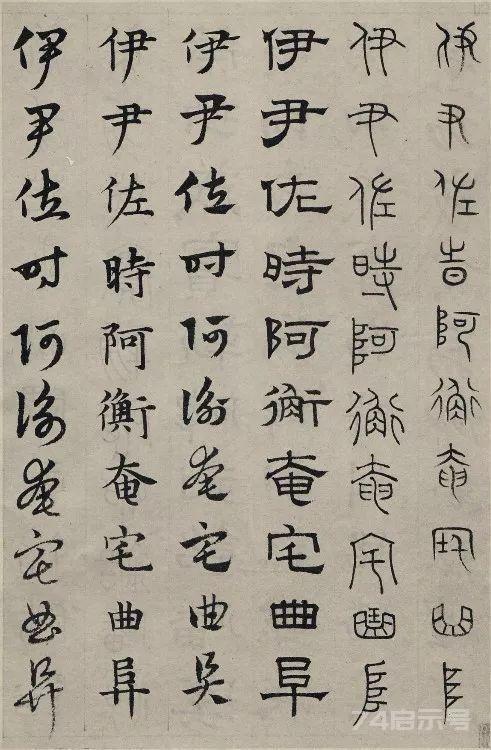 伊尹佐旹阿衡奄宅曲阜
伊尹佐時阿衡奄宅曲阜
伊尹佐時阿衡奄宅曲阜
伊尹佐時阿衡奄宅曲阜
伊尹佐時阿衡奄宅曲阜
伊尹佐時阿衡奄宅曲阜
74启示号